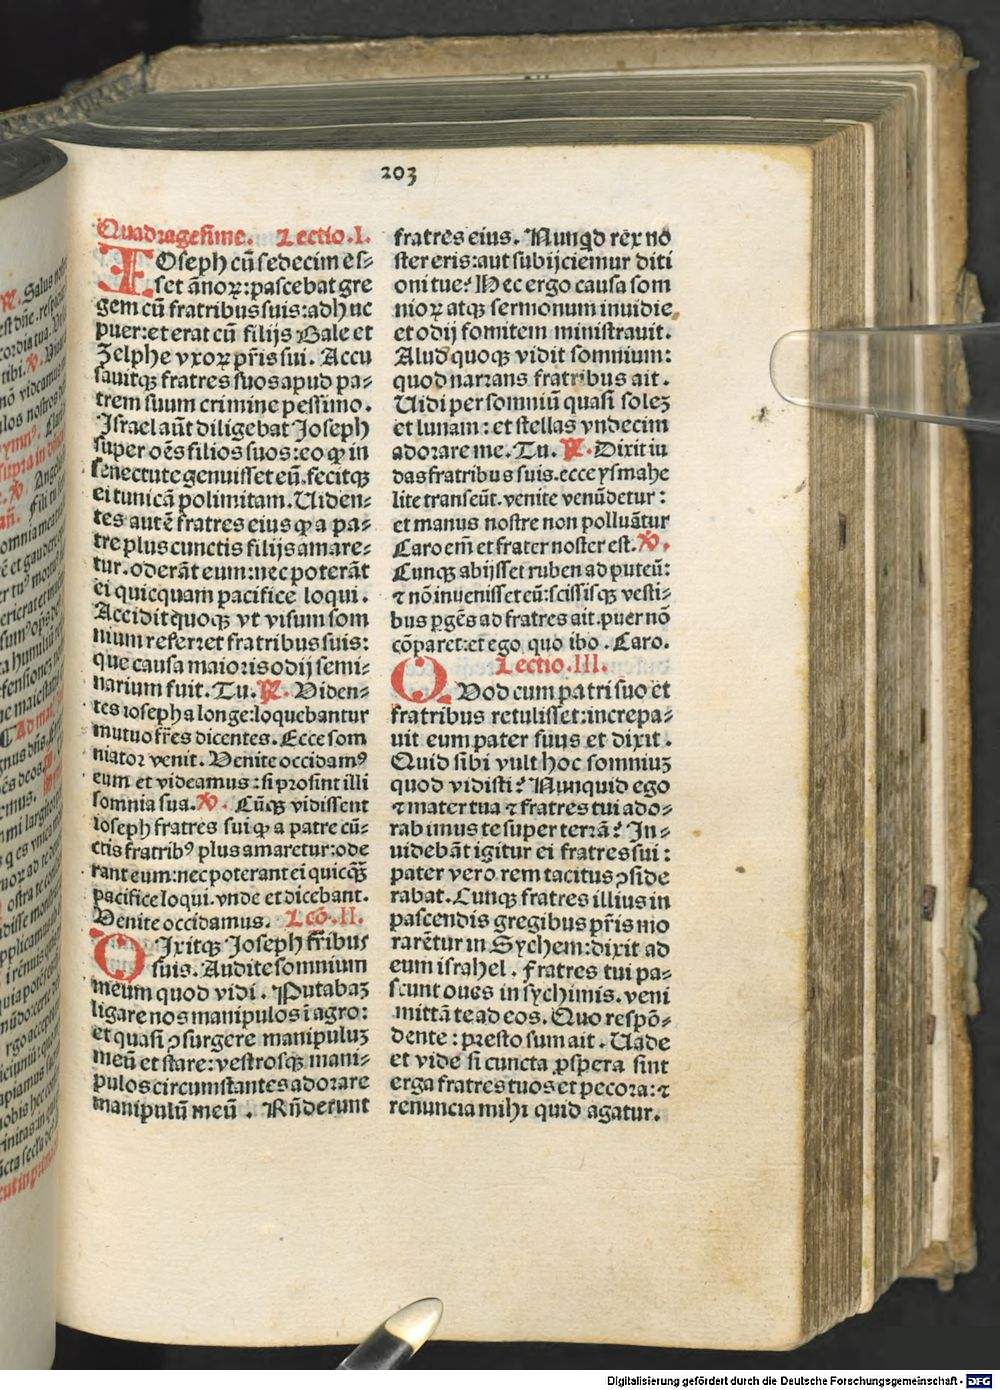 203
Quadragesime. Lectio.I.
IOseph cū sedecim es⸗
set ānoꝝ:pascebat gre
gem cū fratribus suis:adhuc
puer:et erat cū filijs Bale et
Zelphe vxoꝝ pr̄is sui. Accu
sauitqꝫ fratres suos apud pa⸗
trem suum crimine pessimo.
Israel aūt diligebat Joseph
super oēs filios suos:eo ꝙ in
senectute genuisset eū.fecitqꝫ
ei tunicā polimitam. Uiden⸗
tes autē fratres eius ꝙ a pa⸗
tre plus cunctis filijs amare⸗
tur.oderāt eum:nec poterāt
ei quicquam pacifice loqui.
Accidit quoqꝫ vt visum som
nium referret fratribus suis:
que causa maioris odij semi⸗
narium fuit. Tu. ℟. Viden⸗
tes ioseph a longe:loquebantur
mutuo fr̄es dicentes. Ecce som
niator venit. Venite occidamꝰ
eum et videamus:si prosint illi
somnia sua. ℣. Cūqꝫ vidissent
ioseph fratres sui ꝙ a patre cū⸗
ctis fratribꝰ plus amaretur:ode
rant eum:nec poterant ei quicqꝫ̄
pacifice loqui.vnde et dicebant.
Venite occidamus. Lcō.II.
DIxitqꝫ Joseph fr̄ibus
suis. Audite somnium
meum quod vidi. Putabaꝫ
ligare nos manipulos ī agro:
et quasi ꝯsurgere manipuluꝫ
meū et stare:vestrosqꝫ mani⸗
pulos circumstantes adorare
manipulū meū . Rn̄derunt
fratres eius. Nunqd rex no
ster eris:aut subijciemur diti
oni tue? Hec ergo causa som
nioꝝ atqꝫ sermonum inuidie
et odij fomitem ministrauit.
Aliud quoqꝫ vidit somnium:
quod narrans fratribus ait.
Uidi per somniū quasi soleꝫ
et lunam:et stellas vndecim
adorare me. Tu. ℟. Dixit iu
das fratribus suis.ecce ysmahe
lite transeūt.venite venūdetur:
et manus nostre non polluātur
Caro em̄ et frater noster est. ℣.
Cunqꝫ abijsset ruben ad puteū:
⁊ nō inuenisset eū:scissisqꝫ vesti⸗
bus ꝑgēs ad fratres ait.puer nō
cōparet:et ego quo ibo . Caro.
Lectio.III.
QVod cum patri suo et
fratribus retulisset:increpa⸗
uit eum pater suus et dixit.
Quid sibi vult hoc somniuꝫ
quod vidisti? Nunquid ego
⁊ mater tua ⁊ fratres tui ado⸗
rabimus te super terrā? In⸗
uidebāt igitur ei fratres sui:
pater vero rem tacitus ꝯside
rabat. Cunqꝫ fratres illius in
pascendis gregibus pr̄is mo
rarētur in Sychem:dixit ad
eum israhel. Fratres tui pa⸗
scunt oues in sychimis.veni
mittā te ad eos. Quo respō⸗
dente:presto sum ait. Uade
et vide si cuncta ꝓspera sint
erga fratres tuos et pecora:⁊
renuncia mihi quid agatur.
Digitalisierung gefördert durch die Deutsche Forschungsgemeinschaft - DFG